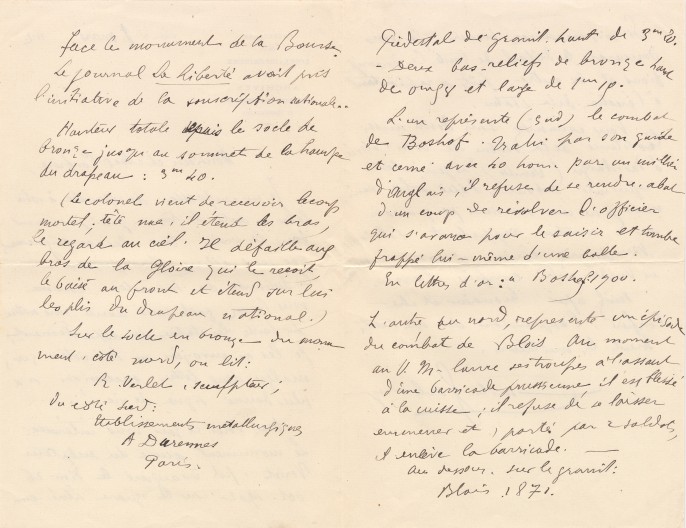 face le monument de la Bourse.
Le journal La Liberté avait pris
l'initiative de la souscription nationale.
Hauteur totale depuis le socle de
bronze jusqu'au sommet de la hampe
du drapeau : 3m 40.
(Le colonel vient de recevoir le coup
mortel. tête nue, il étend les bras,
le regard au ciel. Il défaille aux
bras de la Gloire qui le reçoit
le baise au front et étend sur lui
les plis du drapeau national.)
Sur le socle en bronze du monu
ment, côté nord, on lit:
R. Verlet, sculpteur;
Du côté sud:
Etablissements métallurgiques
A Durennes
Paris.
Piédestal de granit haut de 3m
- Deux bas-reliefs de bronze haut
de et large de 1m 10.
L'un représente (sud) le combat
de Boshof. Trahi par son guide
et cerné avec 40 hom. par un millier
d'Anglais, il refuse de se rendre, abat
d'un coup de révolver l'officier
qui s'avance pour le saisir et tombe
frappé lui-même d'une balle.
En lettres d'or : Boshof 1900.
L'autre au nord, représente un épisode
du combat de Blois. Au moment
où V. M. lance ses troupes à l'assaut
d'une barricade prussienne, il est blessé
à la cuisse ; il refuse de se laisser
emmener et, porté par 2 soldats,
il enlève la barricade. —
Au dessous, sur le granit:
Blois. 1871.